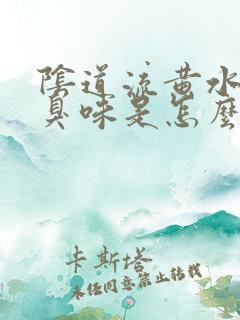 陰道流黃水
臭味是怎麼
卡斯塔
未经同意禁止转载